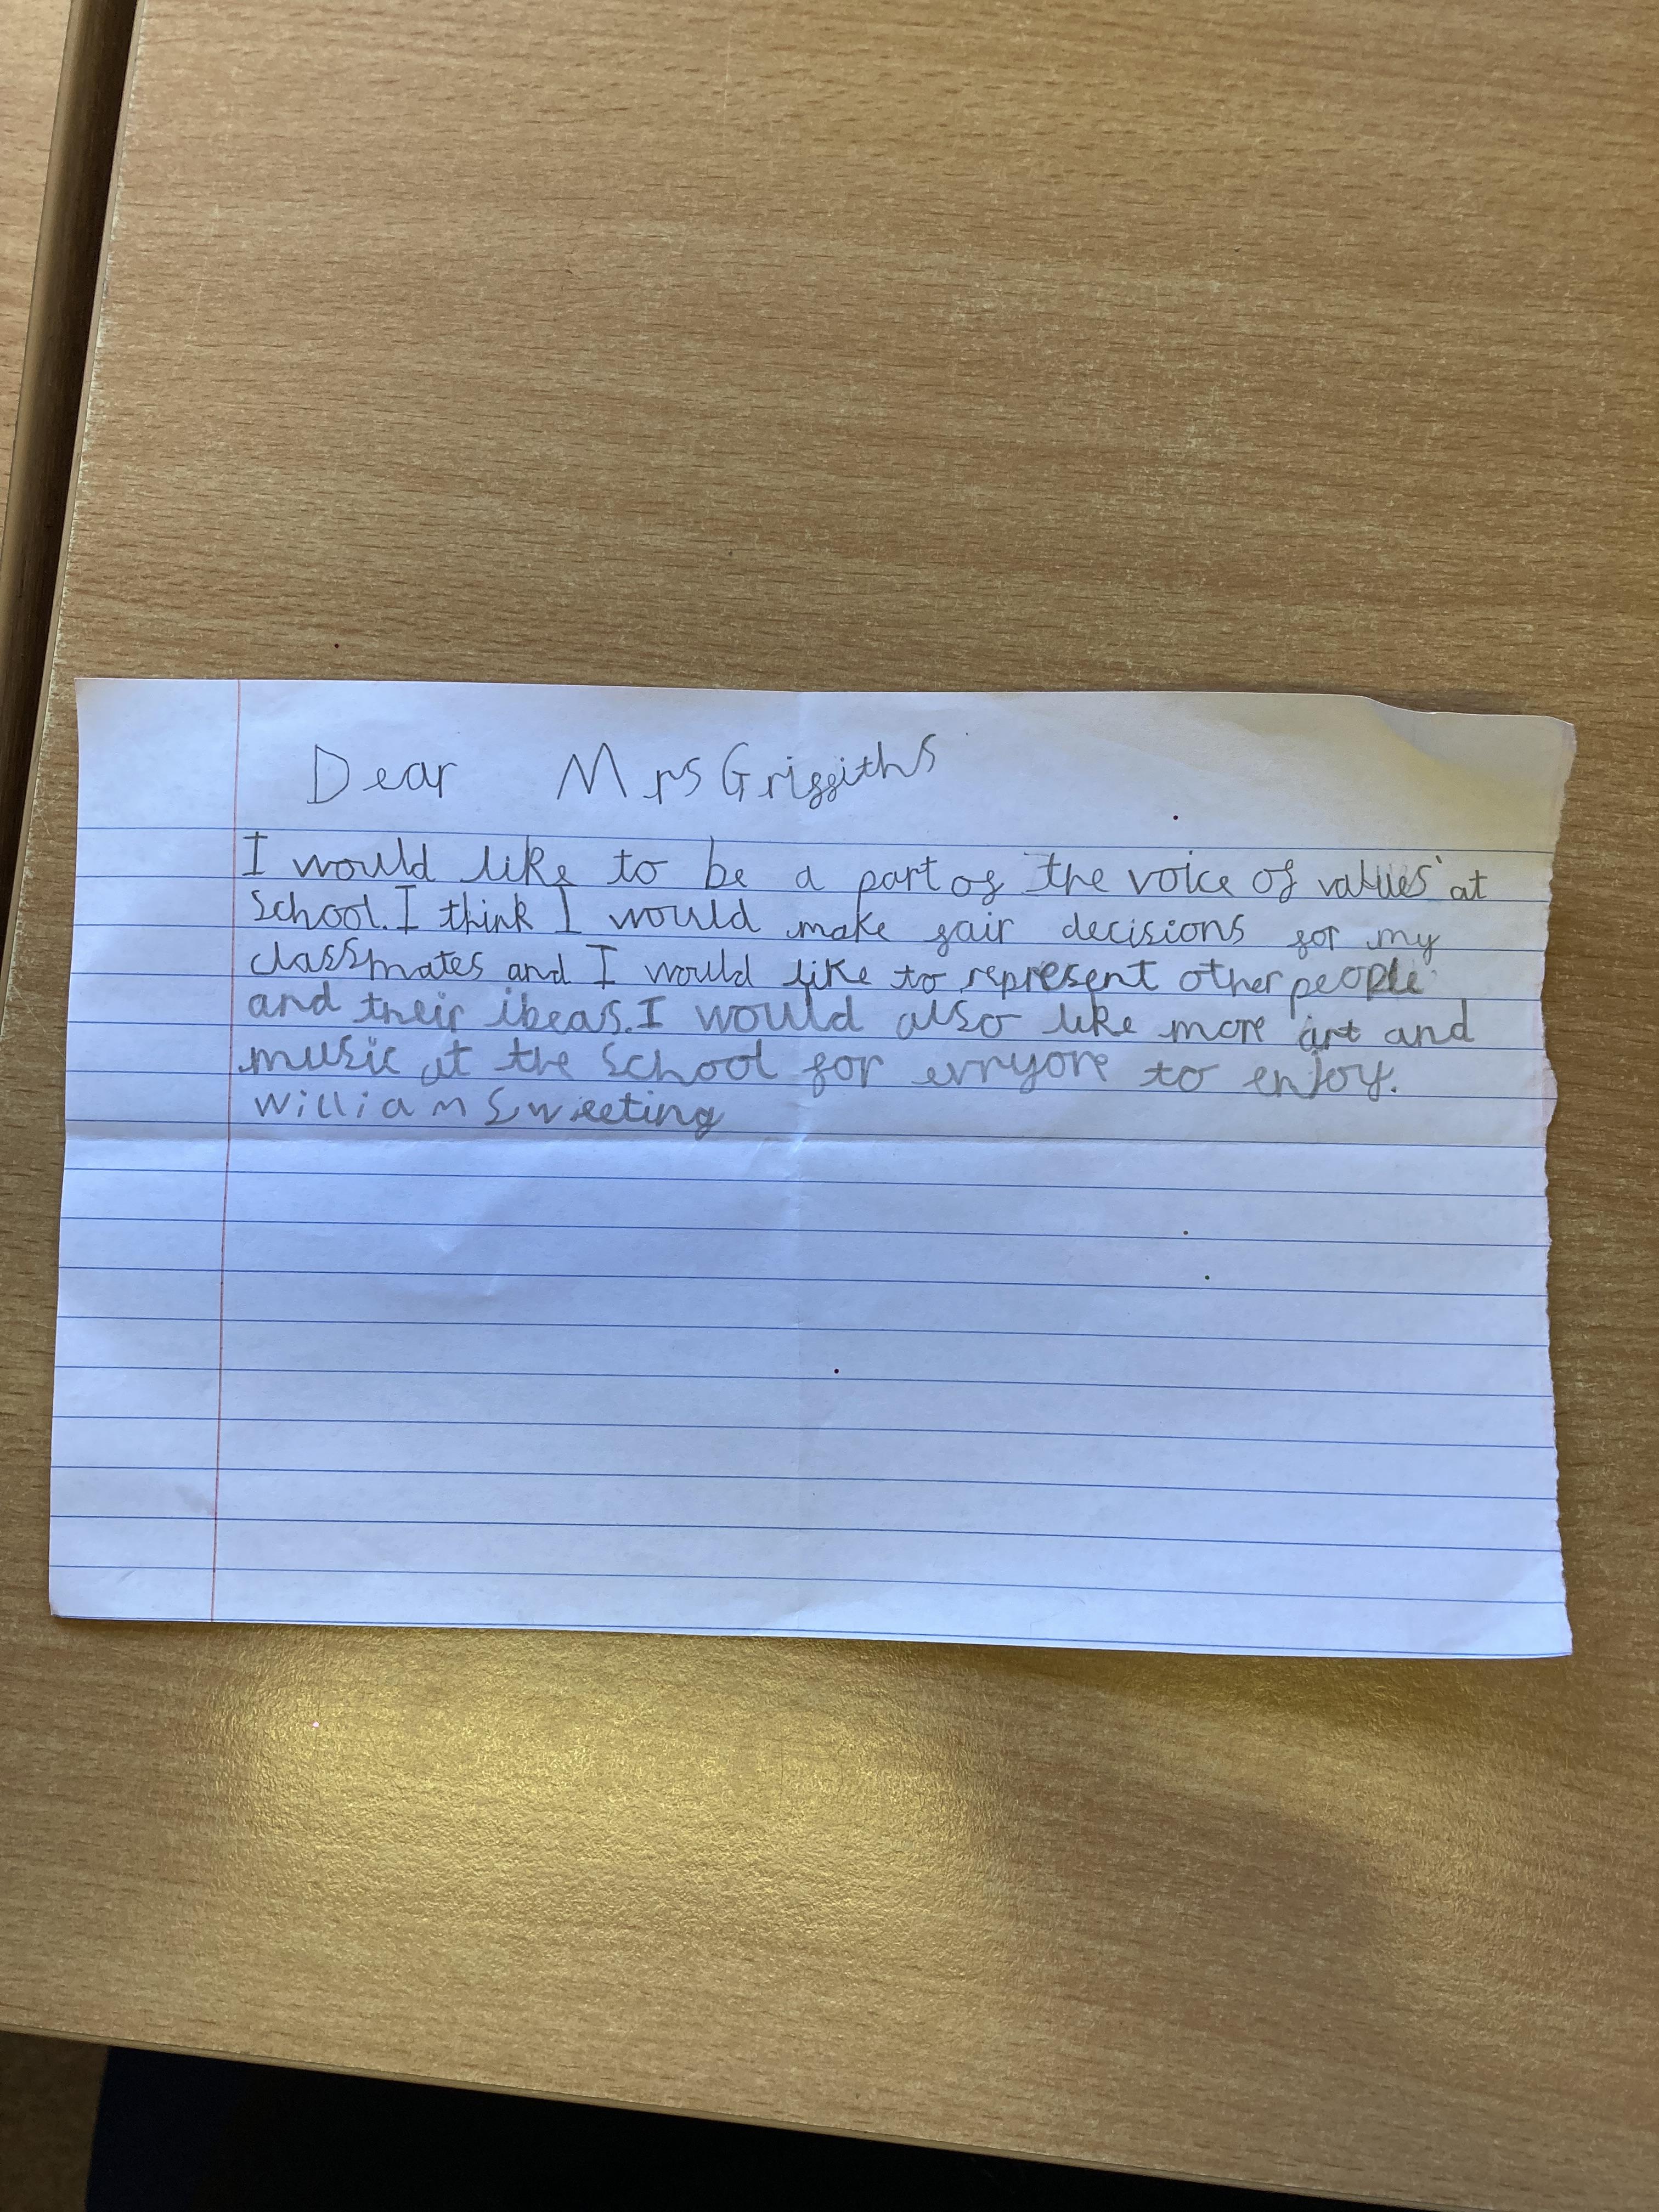 Dear Mrs Griffiths
I would like to be a part of the voice of values at
School. I think I would make fair decisions for my
classmates and I would like to represent other people
and their ibeas. I would also like more art and
music at the School for erryone to enjoy.
William Sweeting